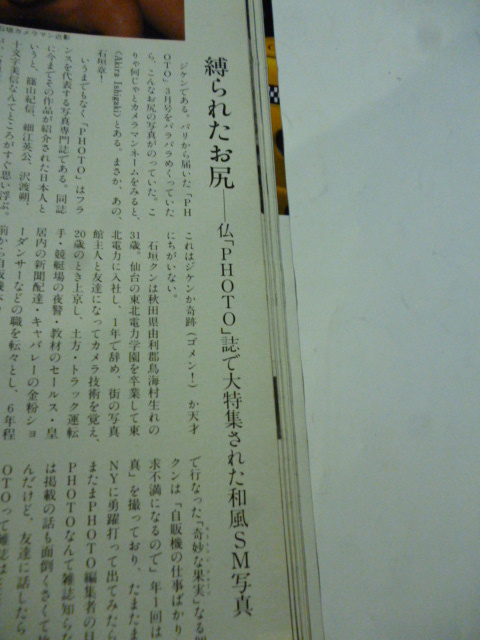 縛られたお尻——仏「PHOTO」誌で大特集された和風SM写真
ジケンである。パリから届いた「PH
OTO」3月号をパラパラめくっていた
ら、こんなお尻の写真がのっていた。こ
りゃ何じゃとカメラマンネームをみると、
〈Akira Ishigaki〉とある。まさか、あの、
石垣章!
いうまでもなく「PHOTO」はフラ
ンスを代表する写真専門誌である。同誌
に今までその作品が紹介された日本人と
いうと、篠山紀信、細江英公、沢渡朔、
十文字美信なんてところがすぐ思い浮ぶ。
これはジケンか奇跡(ゴメン!)か天才
にちがいない。
石垣クンは秋田県由利郡鳥海村生れの
31歳。仙台の東北電力学園を卒業して東
北電力に入社し、1年で辞め、街の写真
館主人と友達になってカメラ技術を覚え、
20歳のとき上京し、土方・トラック運転
手・競艇場の夜警・教材のセールス・皇
居内の新聞配達・キャバレーの金粉ショ
ーダンサーなどの職を転々とし、6年程
で行なった「奇妙な果実」なる
クンは「自販機の仕事ばかり
求不満になるので」年1回は
真」を撮っており、たまたま
NYに勇躍打って出てみたら
またまPHOTO編集者の目
PHOTOなんて雑誌知らな
は掲載の話も面倒くさくて
んだけど、友達に話したら
OTOって雑誌は